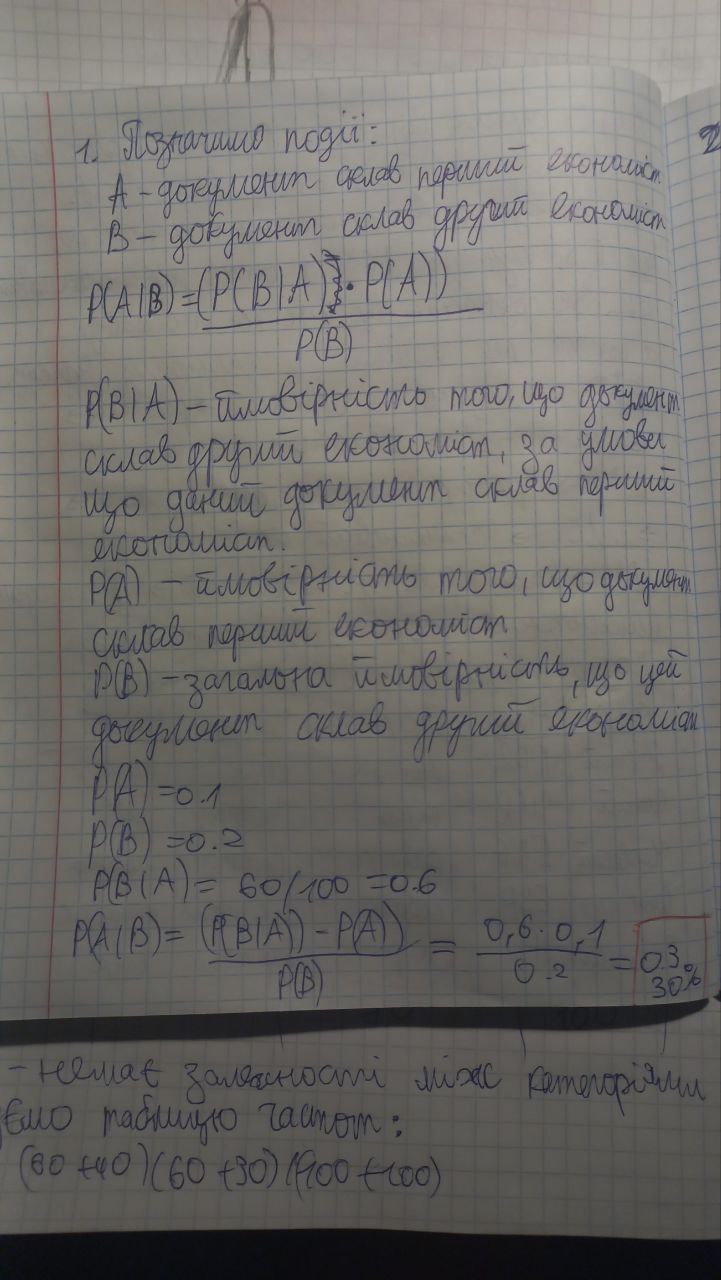 1. Позначимо події:
2
А – документ склав перший економіст.
В – документ склав другий економіст
P(A|B) = (P(B|A) · P(A))
P(B)
P(B|A) – ймовірність того, що документ
склав другий економіст, за умови
що даний документ склав перший
економіст.
P(A) – ймовірність того, що документ
склав перший економіст
P(B) – загальна ймовірність, що цей
документ склав другий економіст
P(A) = 0.1
P(B) = 0.2
P(B|A) = 60/100 = 0.6
P(A|B) = (P(B|A)) - P(A)) = 0,6 · 0,1 = 0.3.
P(B) 0.2 30%
– немає залежності між категоріями
ємо таблицю частот:
(60+40)(60+30)(100+100)